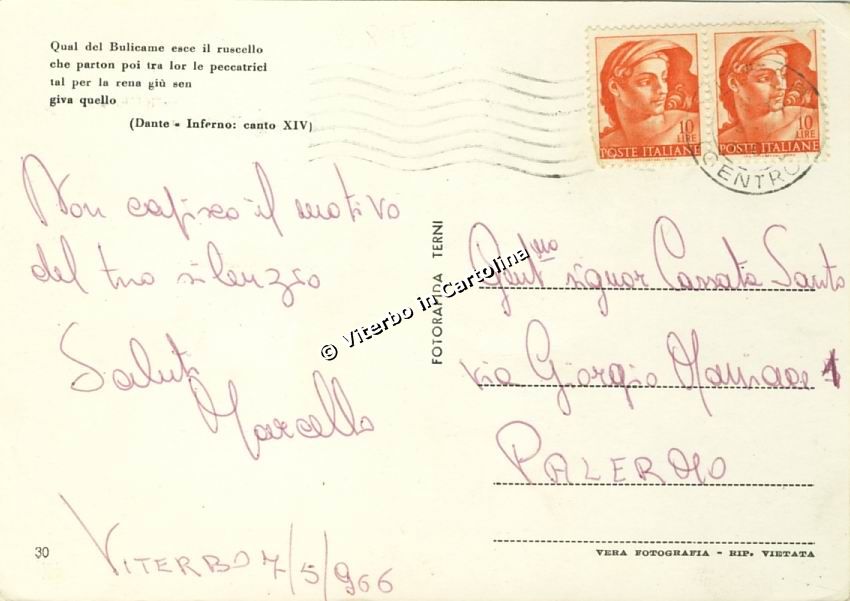 Qual del Bulicame esce il ruscello
che parton poi tra lor le peccatrici
tal per la rena giù sen
giva quello
(Dante - Inferno: canto XIV)
Non capisco il motivo
del tuo silenzio
Saluti
Marcello
VITERBO 7/5/966
30
FOTORAPIDA TERNI
© Viterbo in Cartolina
10 LIRE
POSTE ITALIANE
10 LIRE
POSTE ITALIANE
CENTRO
Gent.mo signor Cassata Santo
via Giorgio Maniace 1
PALERMO
VERA FOTOGRAFIA - RIP. VIETATA